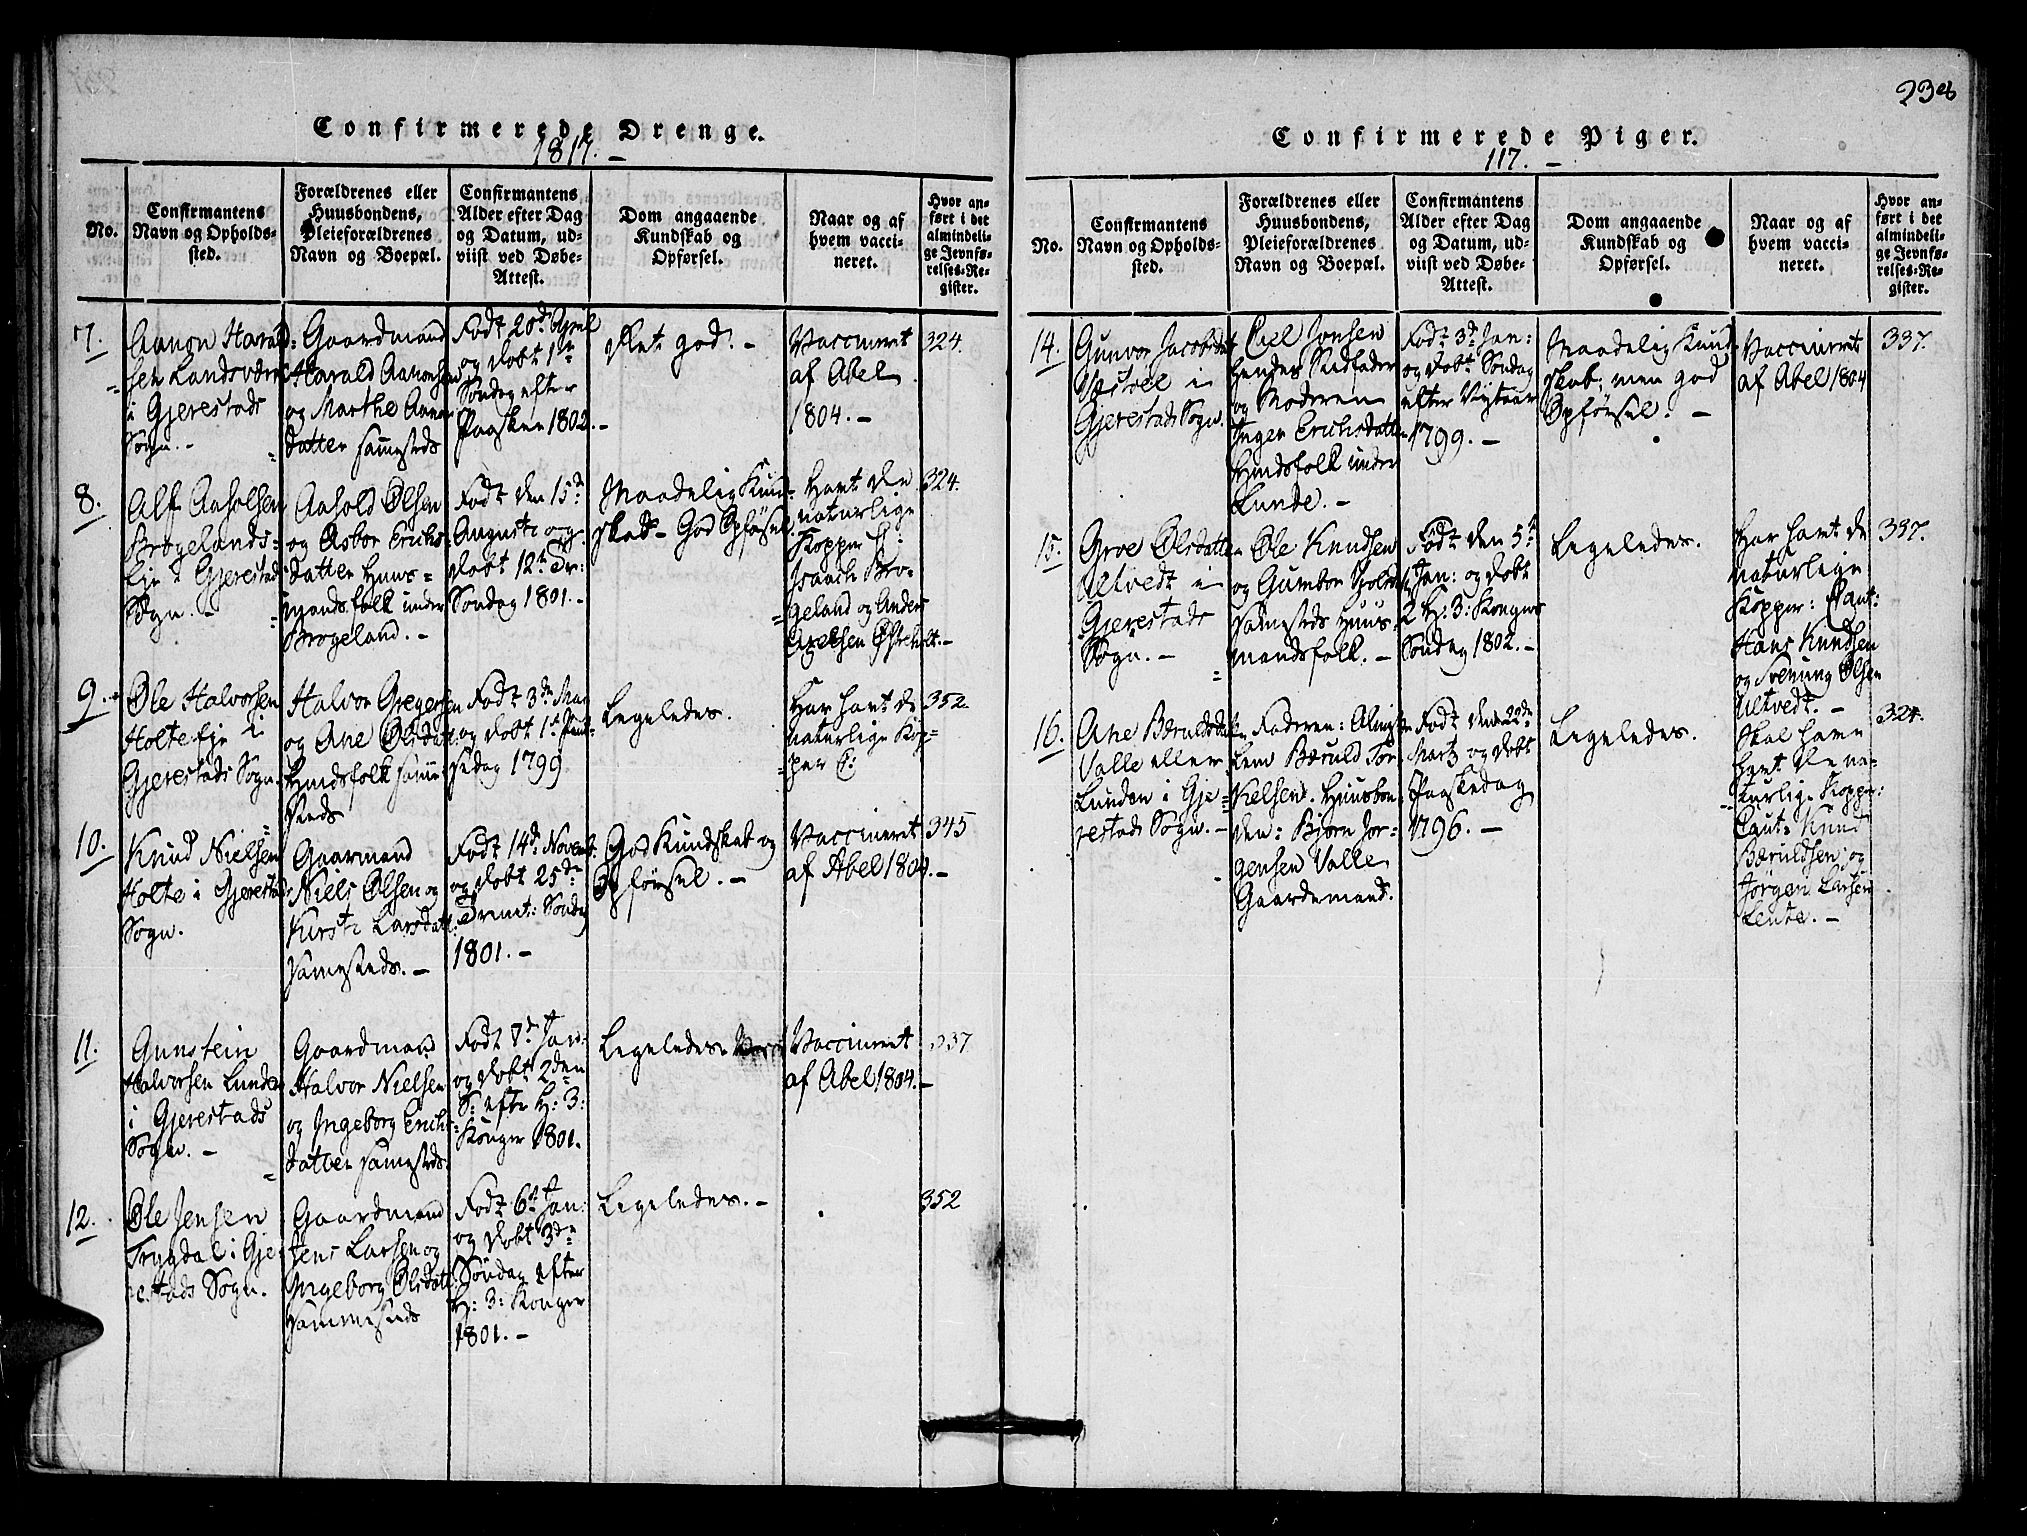 Confirmerede Drenge.
1817. –
No.
Confirmantens
Navn og Opholds-
sted.
Forældrenes eller
Huusbondens,
Pleieforældrenes
Navn og Boepæl.
Confirmantens
Alder efter Dag
og Datum, ud-
viist ved Døbe-
Attest.
Dom angaaende
Kundskab og
Opførsel.
Naar og af
hvem vacci-
neret.
Hvor an-
ført i det
almindeli-
ge Jevnfø-
relses-Re-
gister.
7.
Aanon Harald-
sen Landsværk
i Gjerestads
Sogn. –
Gaardmand
Harald Aanonsen
og Marthe Aanon
datter sammesteds
Født 20de April
og døbt 1ste
Søndag efter
Paasken 1802. –
Ret god. –
Vaccineret
af Abel
1804. –
324.
8.
Alf Aasolsen
Brogelands-
eje i Gjerestad
Sogn. –
Aasold Olsen
og Asbor Erichs-
datter Huus-
mandsfolk under
Brogeland. –
Født den 15de
Augusti og
døbt 12te Tr:
Søndag 1801. –
Maadelig Kund-
skab – God Opførsel.
Havt de
naturlige
Kopper
Isaach Bro-
geland og Anders
Axelsen Østeholt. –
324.
9.
Ole Halvorsen
Holte eje i
Gjerestads Sogn.
Halvor Gregersen
og Ane Olsdatt.
Huusfolk samme-
steds
Født 3de Maj
og døbt 1st Pint-
sedag 1799
Ligeledes.
Har havt de
naturlige Kop-
per
352
10.
Knud Nielsen
Holte i Gjerestad
Sogn.
Gaarmand
Niels Olsen og
Kirsti Larsdatt.
sammesteds. –
Født 14de Novemb.
og døbt 25de
Trinit: Søndag
1801. –
God Kundskab og
Opførsel. –
Vaccineret
af Abel 1804. –
345
11.
Gunstein
Halvorsen Lunden
i Gjerestads
Sogn. –
Gaardmand
Halvor Nielsen
og Ingeborg Erichs
datter sammesteds.
Født 7de Jan:
og døbt 2den
S: efter H: 3:
Konger 1801.
Ligeledes.
Vaccineret
af Abel 1804. –
337.
12.
Ole Jensen
Trygdal i Gje-
restads Sogn.
Gaardmand
Jens Larsen og
Ingeborg Olsdatt.
Sammesteds
Født 6te Jan:
og døbt 3de
Søndag efter
H: 3: Konger
1801. –
Ligeledes. –
352
23
Confirmerede Piger.
117. –
No.
Confirmantens
Navn og Opholds-
sted.
Forældrenes eller
Huusbondens,
Pleieforældrenes
Navn og Boepæl.
Confirmantens
Alder efter Dag
og Datum, ud-
viist ved Døbe-
Attest.
Dom angaaende
Kundskab og
Opførsel.
Naar og af
hvem vacci-
neret.
Hvor an-
ført i det
almindeli-
ge Jevnfø-
relses-Re-
gister.
14.
Gunvor Jacobsdatt
Vestøel i
Gjerestads Sogn.
Joel Jonsen
hendes Stedfader
og Moderen
Inger Erichsdatter
Huusfolk under
Lunde. –
Født 3de Jan:
og døbt Søndag
efter Nytaar
1799. –
Maadelig Kund
skab; men god
Opførsel. –
Vaccineret
af Abel 1804
337.
15.
Groe Olsdatter
Ulltvedt i
Gjerestads
Sogn. –
Ole Knudsen
og Gunbor
sammesteds Huus-
mandsfolk. –
Født den 5te
Jan: og døbt
2 H: 3: Kongers
Søndag 1802. –
Ligeledes.
Har havt de
naturlige
Kopper:
Hans Knudsen
og Svenung Olsen
Ultvedt. –
337.
16.
Ane Bæruldsdatt
Valle eller
Lunden i Gje-
restads Sogn. –
Faderen: Almis-
lem Bæruld Tor-
kelsen. Huusbon-
den: Bjørn Jor-
gensen Valle
Gaardemand.
Født den 22de
Martz og døbt
Paaskedag
1796. –
Ligeledes.
Skal have
havt de na-
turlige Kopper:
Knud
Bæruldsen og
Jørgen Larsen
Lente. –
324.